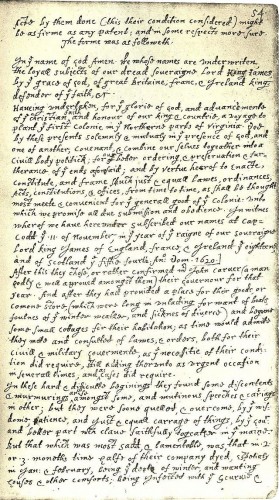 54
by them done (this their condition considered) might
be as firme as any patent; and in some respects more sure.
The forme was as followeth.
In yͤ name of god Amen. we whose names are underwriten,
the loyall subjects of our dread soveraigne Lord King James
by yͤ grace of god, of great britaine, franc, & Ireland king,
defender of yͤ faith, &c
Haveing undertaken, for yͤ glorie of god, and advancemente
of yͤ christian and honour of our king & countrie, a voyage to
plant yͤ first colonie in yͤ Northerne parts of virginia. Doe
by these presents solemnly & mutualy in yͤ presence of god, and
one of another, covenant, & combine our selves togeather into a
civill body politick; for our better ordering, & preservation & fur-
therance of yͤ ends aforesaid; and by vertue hearof to enacte,
constitute, and frame such just & equall lawes, ordinances,
acts, constitutions, & offices, from time to time, as shall be thought
most meete & convenient for yͤ generall good of yͤ colonie: unto
which we promise all due submission and obedience. In witnes
wherof we have hereunder subscribed our names at cap-
codd yͤ ·11· of November, in yͤ year of yͤ raigne of our soveraigne
Lord king James of England, france, & Ireland yͤ eighteenth
and of Scotland yͤ fiftie fourth. Ano: Dom. 1620.
After this they chose, or rather confirmed mr John carver (a man
godly & well approved amongst them) their Governour for that
year. And after they had provided a place for their goods, or
comone store, (which were long in unlading for want of boats,
foulnes of yͤ winter weather, and sicknes of diverce) and begune
some small cottages for their habitation; as time would admitte
they mette and consulted of lawes, & orders, both for their
civill & military Govermente, as yͤ necessitie of their condi-
tion did require, still adding therunto as urgent occasion
in severall times, and as cases did require.
In these hard & difficulte beginings they found some discontents
& murmurings arise amongst some, and mutinous speeches & cariags
in other; but they were soone quelled, & overcome, by yͤ wis-
dome, patience, and just & equall carrage of things, by yͤ Govr
and better part wch clave faithfully togeather in yͤ maine.
But that which was most sadd, & lamentable, was, that in 2.
or 3. moneths time halfe of their company dyed, espetialy
in Jan: & february, being yͤ depth of winter, and wanting
houses & other comforts; being Infected with yͤ Scurvie &